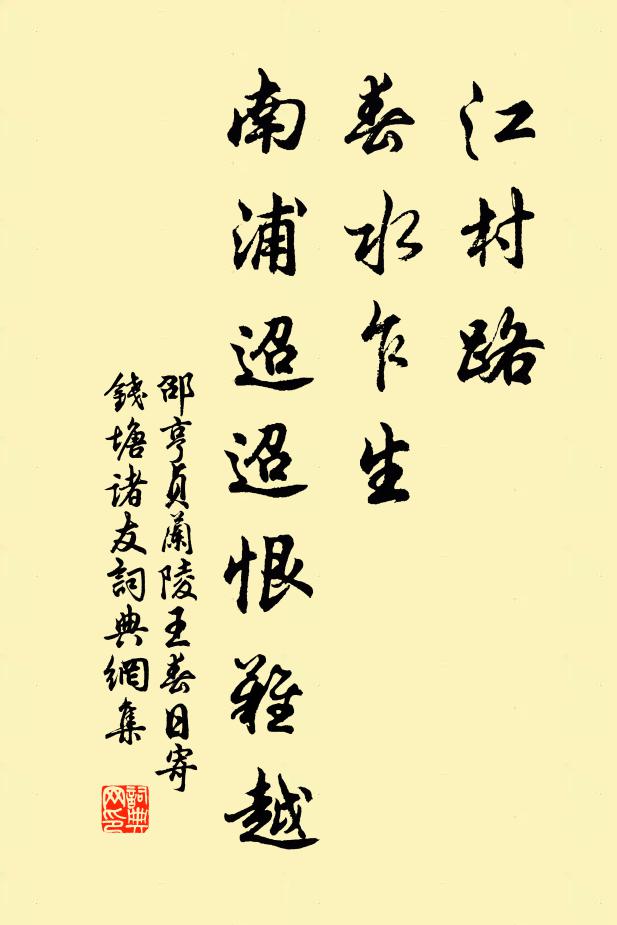 江村路
春水乍生
南浦迢迢恨難越
邵亨貞蘭陵王春日寄
錢塘諸友詞典網集
詞典
网印